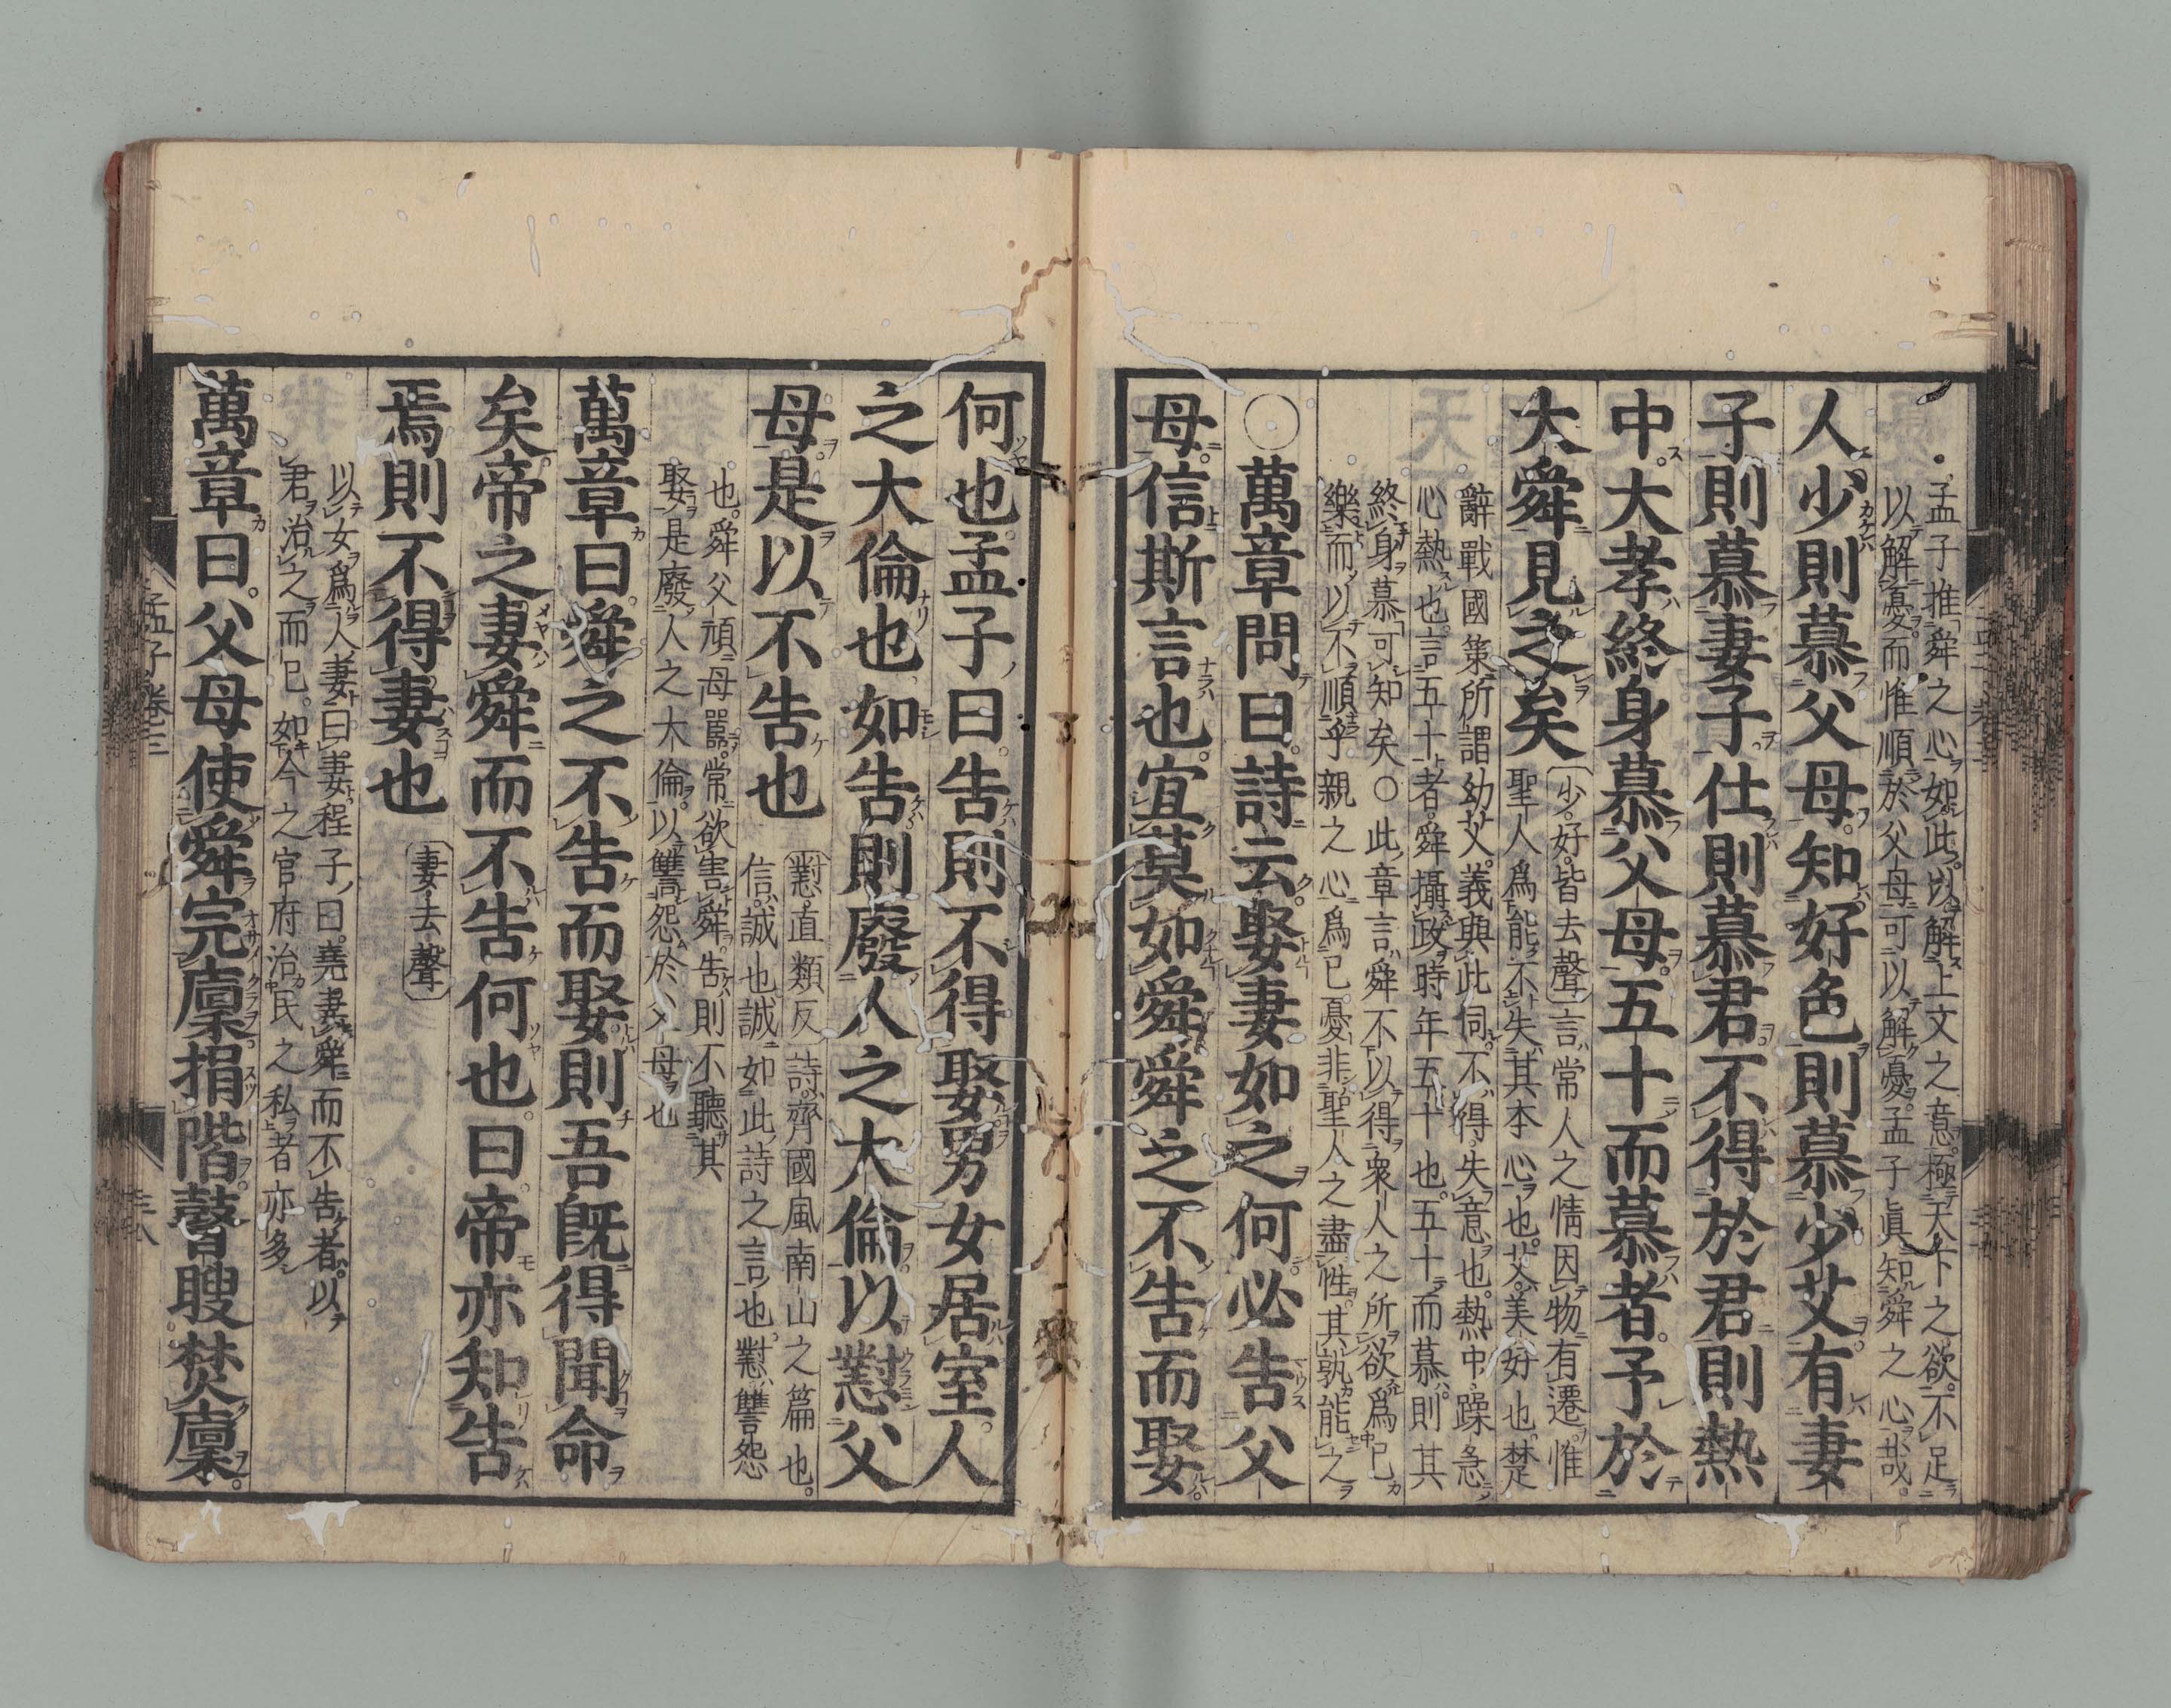 孟子推舜之心如此以解上文之意極天下之欲不足
以解憂而惟順於父母可以解憂孟子眞知舜之心哉
人少則慕父母知好色則慕少艾有妻
子則慕妻子仕則慕君不得於君則熱
中大孝終身慕父母五十而慕者予於
大舜見之矣
少好皆去聲言常人之情因物有遷惟
聖人爲能不失其本心也艾美好也楚
辭戰國策所謂幼艾義與此同不得失意也熱中躁急
心熱也言五十者舜攝政時年五十也五十而慕則其
終身慕可知矣○此章言舜不以得衆人之所欲爲己
樂而以不順乎親之心爲己憂非聖人之盡性其孰能之
○萬章問曰詩云娶妻如之何必告父
母信斯言也宜莫如舜舜之不告而娶
何也孟子曰告則不得娶男女居室人
之大倫也如告則廢人之大倫以懟父
母是以不告也
懟直類反詩齊國風南山之篇也
信誠也誠如此詩之言也懟讐怨
也舜父頑母嚚常欲害舜告則不聽其
娶是廢人之大倫以讐怨於父母也
萬章曰舜之不告而娶則吾既得聞命
矣帝之妻舜而不告何也曰帝亦知告
焉則不得妻也
妻去聲
以女爲人妻曰妻程子曰堯妻舜而不告者以
君治之而已如今之官府治民之私者亦多
萬章曰父母使舜完廩捐階瞽瞍焚廩
孟子卷三
三八